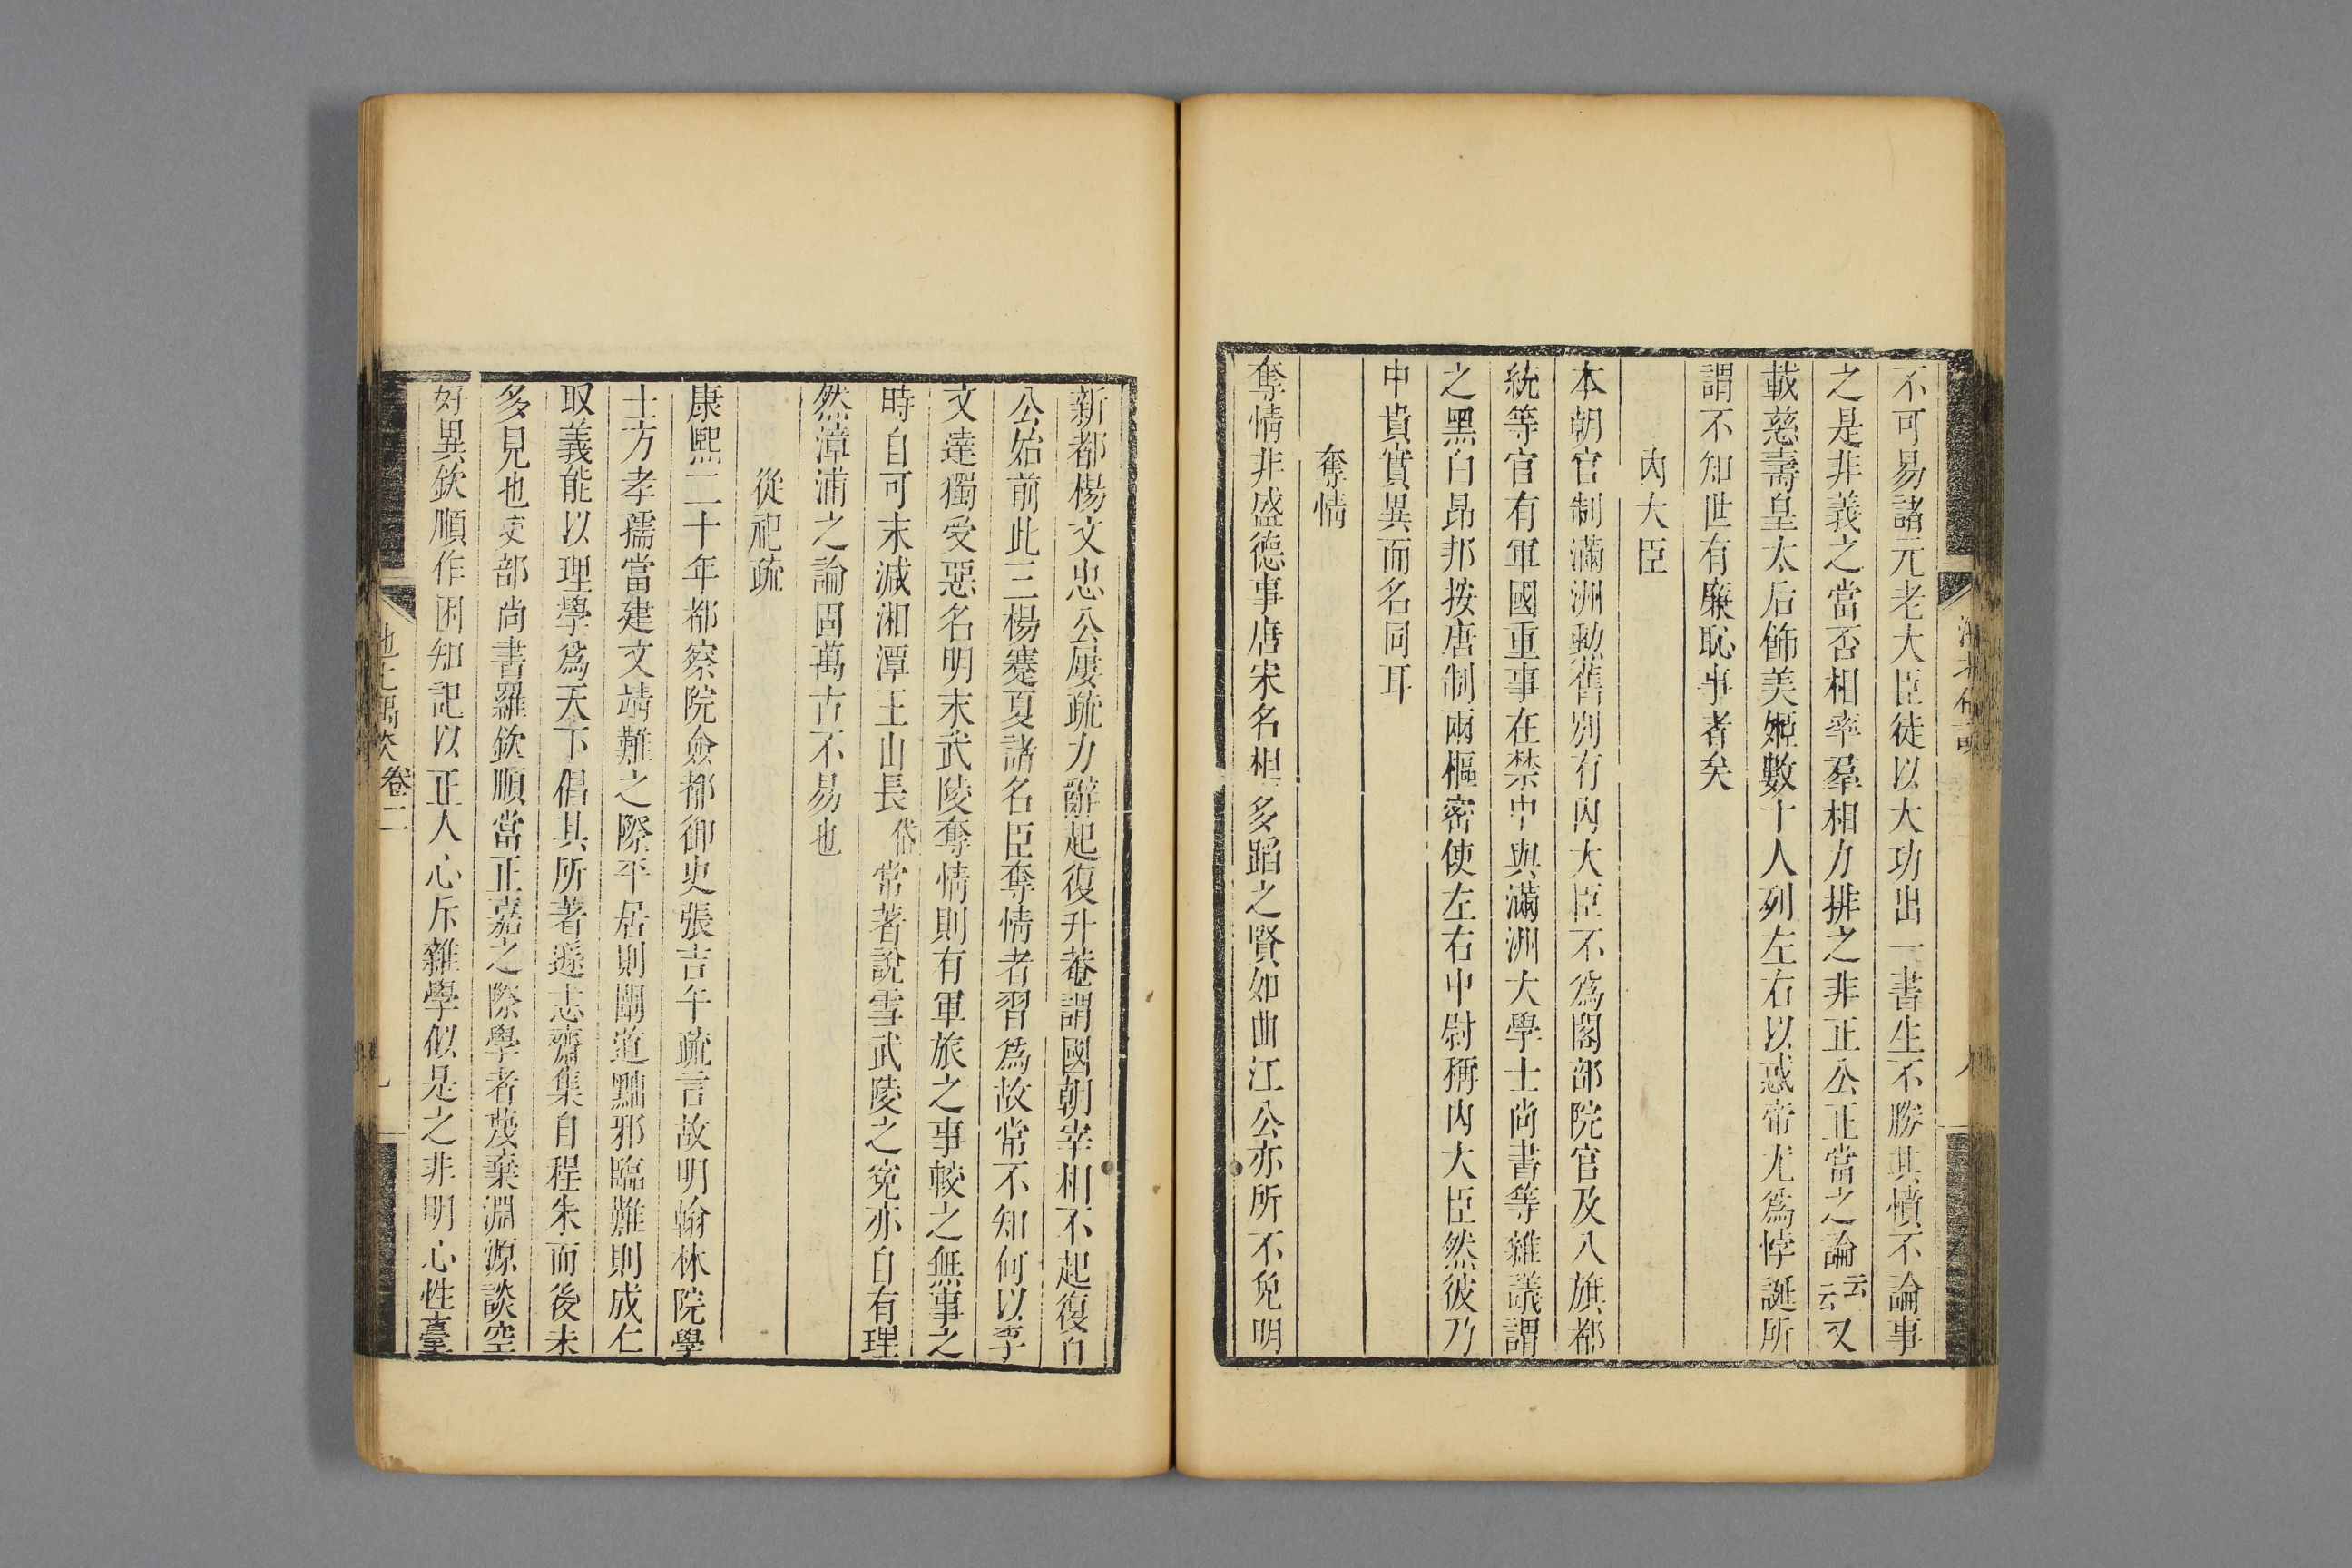 不可易諸元老大臣徒以大功出一書生不勝其憤不論事
之是非義之當否相率羣相力排之非正公正當之論云云又
載慈壽皇太后飾美姬數十人列左右以惑帝尤爲悖誕所
謂不知世有廉恥事者矣
內大臣
本朝官制滿洲勲舊別有內大臣不爲閣部院官及八旗都
統等官有軍國重事在禁中與滿洲大學士尚書等雜議謂
之黑白昂邦按唐制兩樞密使左右中尉稱內大臣然彼乃
中貴實異而名同耳
奪情
奪情非盛德事唐宋名相多蹈之賢如曲江公亦所不免明
新都楊文忠公屢疏力辭起復升菴謂國朝宰相不起復自
公始前此三楊蹇夏諸名臣奪情者習爲故常不知何以李
文達獨受惡名明末武陵奪情則有軍旅之事較之無事之
時自可末減湘潭王山長岱常著說雪武陵之寃亦自有理
然漳浦之論固萬古不易也
從祀疏
康熙二十年都察院僉都御史張吉午疏言故明翰林院學
士方孝孺當建文靖難之際平居則闡道黜邪臨難則成仁
取義能以理學爲天下倡其所著遜志齋集自程朱而後未
多見也吏部尚書羅欽順當正嘉之際學者蔑棄淵源談空
好異欽順作困知記以正人心斥雜學似是之非明心性臺
池北偶談 卷二